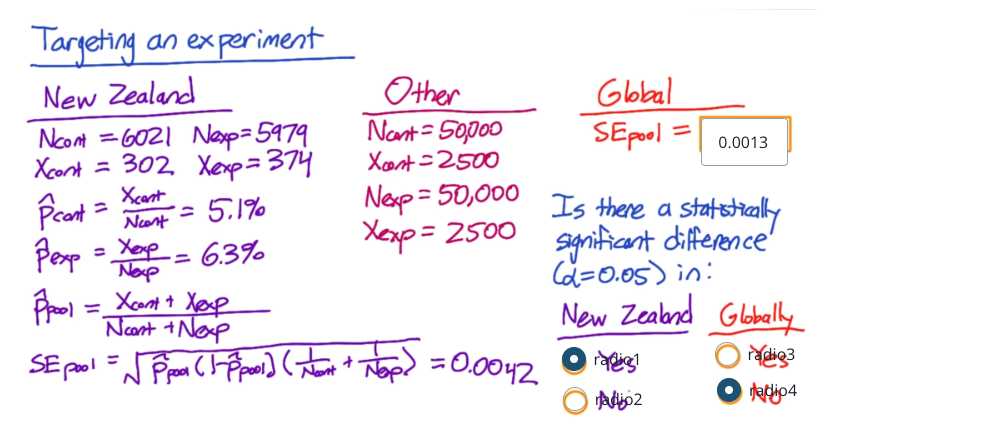 Targeting an experiment
New Zealand
Ncont = 6021 Nexp = 5979
Xcont = 302 Xexp = 374
p̂cont = Xcont / Ncont = 5.1%
p̂exp = Xexp / Nexp = 6.3%
p̂pool = Xcont + Xexp / Ncont + Nexp
SEpool = √p̂pool (1-p̂pool) (1/Ncont + 1/Nexp) = 0.0042
Other
Ncont = 50,000
Xcont = 2500
Nexp = 50,000
Xexp = 2500
Global
SEpool = 0.0013
Is there a statistically
significant difference
(α=0.05) in:
New Zealand Globally
radio1 Yes radio3 Yes
radio2 No radio4 No